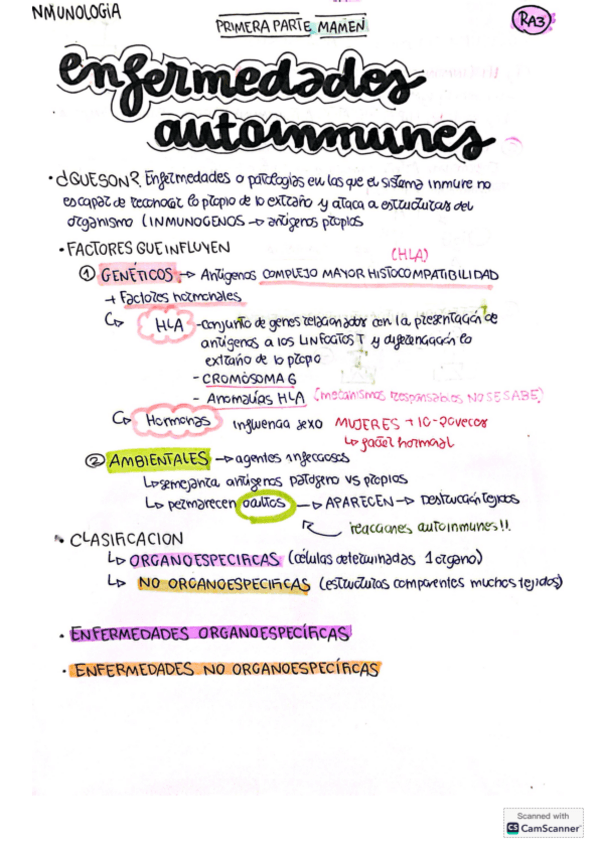 NMUNOLOGIA
PRIMERA PARTE MAMEN
RA3
enfermedades
autoinmunes
• ¿QUE SON?. Enfermedades o patologías en las que el sistema inmune no
es capaz de reconocer lo propio de lo extraño y ataca a estructuras del
organismo (INMUNOGENOS → antígenos propios
• FACTORES QUE INFLUYEN
(HLA)
① GENÉTICOS → Antígenos COMPLEJO MAYOR HISTOCOMPATIBILIDAD
+ Factores hormonales
↳ HLA - conjunto de genes relacionados con la presentación de
antígenos a los LINFOCITOS T y diferenciación lo
extraño de lo propio
- CROMOSOMA 6
- Anomalías HLA (mecanismos responsables NO SE SABE)
↳ Hormonas influencia sexo MUJERES + 10-20 veces
↳ papel hormonal
② AMBIENTALES → agentes infecciosos
↳ semejanza antígenos patógeno vs propios
↳ permanecen ocultos → APARECEN → Destrucción tejidos
reacciones autoinmunes!!
• CLASIFICACION
↳ ORGANOESPECIFICAS (células determinadas 1 organo)
↳ NO ORGANOESPECIFICAS (estructuras componentes muchos tejidos)
• ENFERMEDADES ORGANOESPECÍFICAS
• ENFERMEDADES NO ORGANOESPECÍFICAS
Scanned with
CS CamScanner